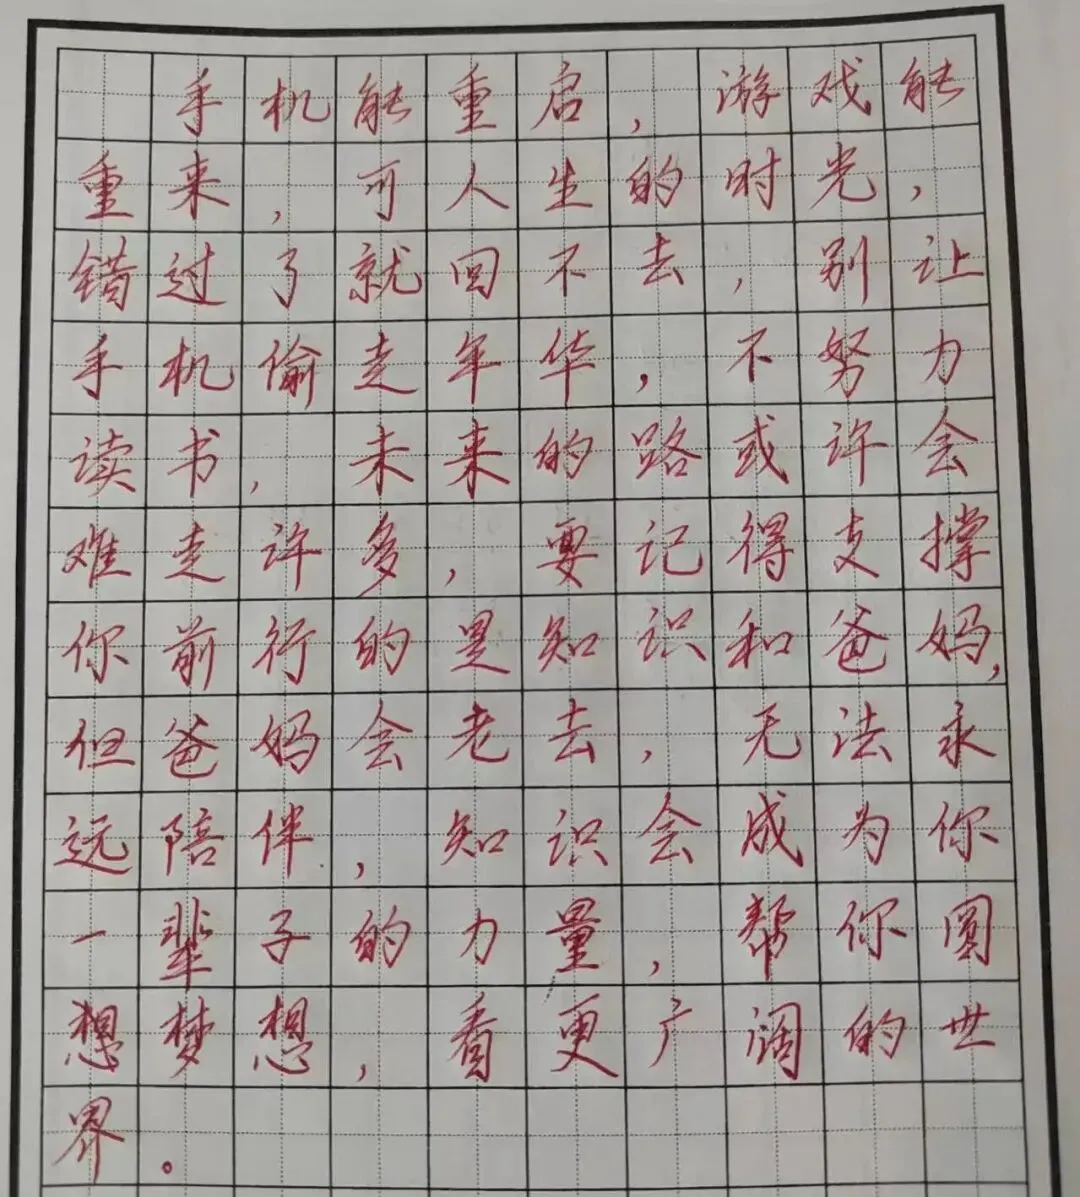 手机能重启，游戏能
重来，可人生的时光，
错过了就回不去，别让
手机偷走年华，不努力
读书，未来的路或许会
难走许多，要记得支撑
你前行的是知识和爸妈，
但爸妈会老去，无法永
远陪伴，知识会成为你
一辈子的力量，帮你圆
想梦想，看更广阔的世
界。